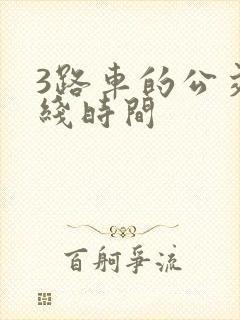 3路車的公交
綫時間
百舸爭流